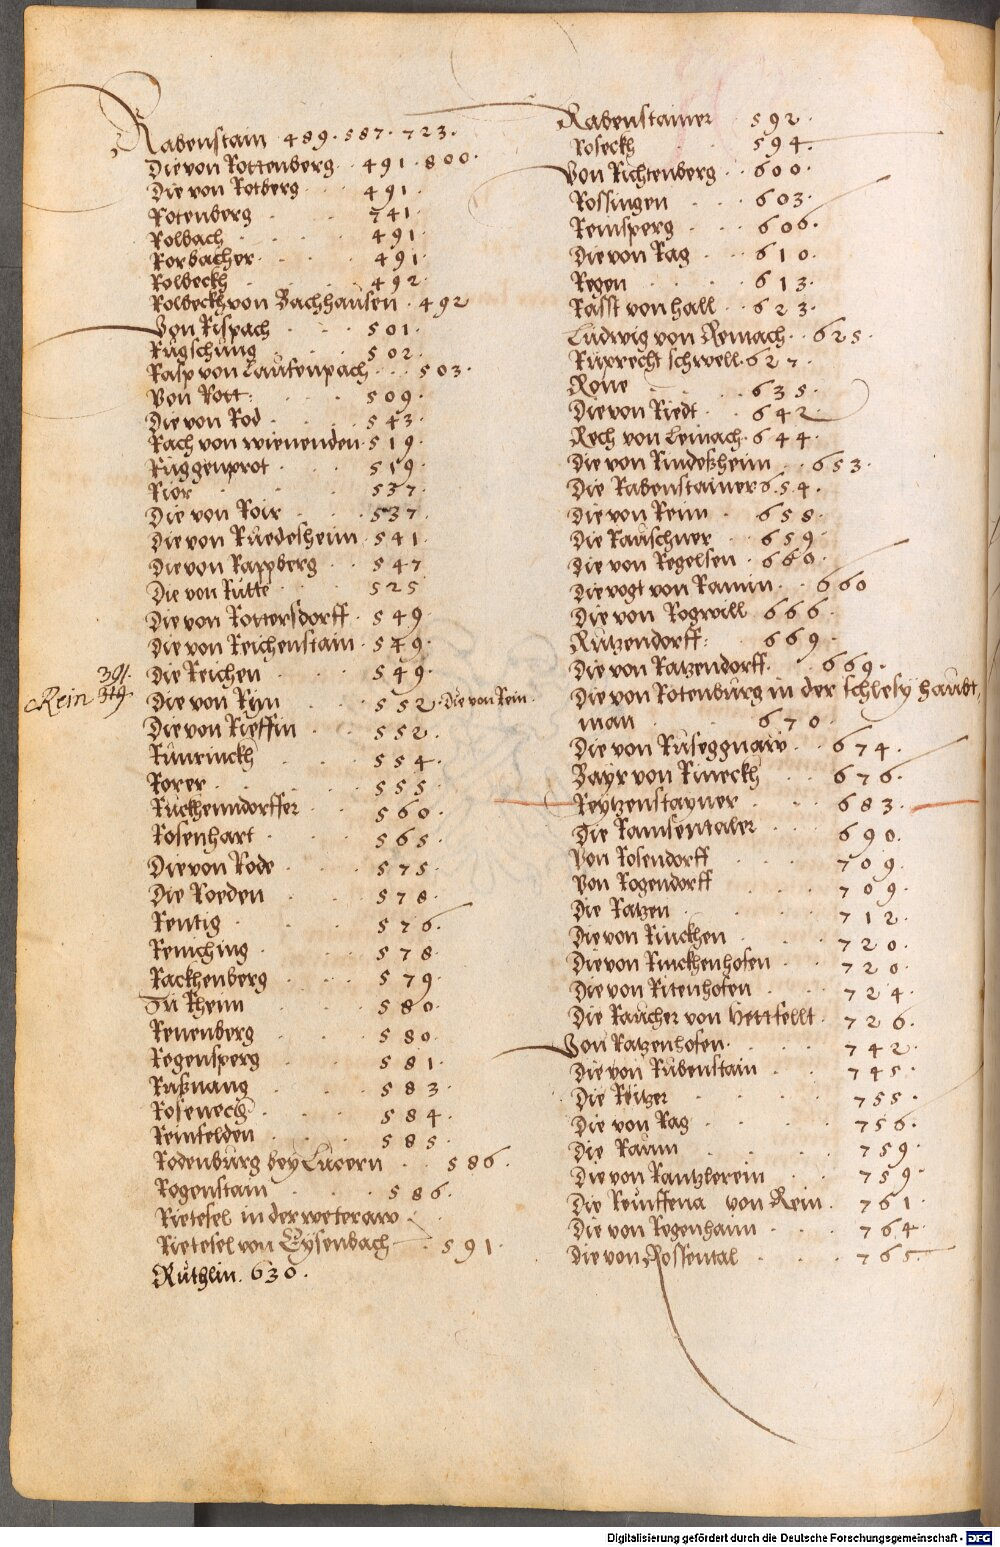 Rabenstain 489. 587. 723.
Die von Rottenberg . 491. 800.
Die von Rotberg . 491.
Rotenberg . 741.
Rolbach . 491.
Rorbacher . 491.
Rolbeckh . 492.
Rolbeckh von Bachhausen . 492
Von Rispach . 501.
Rugschung . 502.
Rasp von Laufenpach . 503.
Von Rott: . 509.
Die von Rod . 543.
Rach von wienenden . 519.
Ruggenprot . 519.
Rior . 537.
Die von Roir . 537.
Die von Ruedesheim . 541.
Die von Rappberg . 547
Die von Rutte . 525
Die von Rottersdorff . 549.
Die von Reichenstain . 549.
Die Reichen . 549.
Rein
Die von Rin . 552. Die von Rein.
Die von Rieffin . 552.
Runrinckh . 554.
Rorer . 555.
Ruckhenndorffer . 560.
Rosenhart . 565.
Die von Rode . 575.
Die Roeden . 578.
Rentig . 576.
Reniching . 578.
Rackhenberg . 579.
Zu Rhenn . 580.
Renenberg . 580.
Regensperg . 581.
Rußnang . 583.
Rosenech . 584.
Reinfelden . 585.
Rodenburg bey Lucern . 586.
Rogenstain . 586.
Rietesel in der weteraw
Rietesel von Eysenbach . 591.
Ruthlin. 630.
Rabenstainer 592.
Roseckh 594.
Von Richtenberg . 600.
Rossingen . 603.
Remsperg . 606.
Die von Rag . 610.
Regen . 613.
Rasst von hall . 623.
Ludwig von Remach . 625.
Ruprecht schwell . 627.
Rone . 635.
Die von Riedt . 642.
Rech von Leinach . 644.
Die von Rindeßheim . 653.
Die Rabenstainer 654.
Die von Renn . 658.
Die Rauschner . 659.
Die von Regelsen . 660.
Die vogt von Ramin . 660
Die von Rogwill 666.
Rutzendorff: 669.
Die von Ratzendorff . 669.
Die von Rotenburg in der schlesy haubt,
man . 670.
Die von Ruseggnaw . 674.
Bayr von Rineckh . 676.
Reytzenstayner . 683.
Die Ramsentaler . 690.
Von Rosendorff . 709.
Von Rogendorff . 709.
Die Ratzen . 712.
Die von Rinckhen . 720.
Die von Rinckhenhofen . 720.
Die von Ritenhofen . 724.
Die Raucher von Hettfellt . 726.
Von Ratzenhofen . 742.
Die von Rubenstain . 745.
Die Reitzer . 755.
Die von Rag . 756.
Die Raum . 759.
Die von Rantzlerein . 759.
Die Reinffena von Rein . 761
Die von Regenhain . 764.
Die von Rossental . 765.
Digitalisierung gefördert durch die Deutsche Forschungsgemeinschaft - DFG